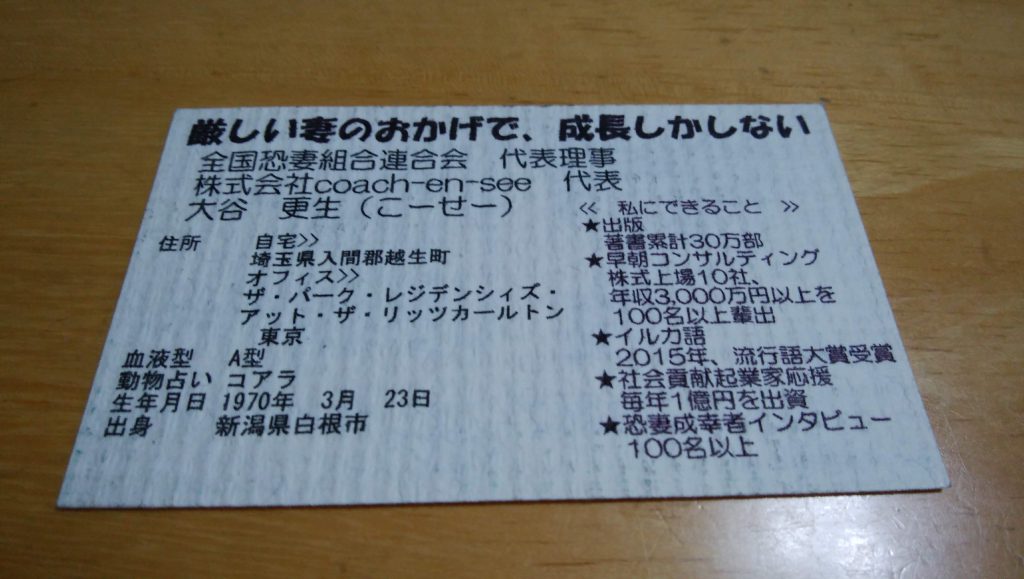 厳しい妻のおかげで、成長しかしない
全国恐妻組合連合会　代表理事
株式会社coach-en-see　代表
大谷　更生（こーせー）
住所　自宅>>
埼玉県入間郡越生町
オフィス>>
ザ・パーク・レジデンシィズ・
アット・ザ・リッツカールトン
東京
血液型　A型
動物占い コアラ
生年月日 1970年　3月　23日
出身　新潟県白根市
≪　私にできること　≫
★出版
著書累計30万部
★早朝コンサルティング
株式上場10社、
年収3,000万円以上を
100名以上輩出
★イルカ語
2015年、流行語大賞受賞
★社会貢献起業家応援
毎年1億円を出資
★恐妻成幸者インタビュー
100名以上